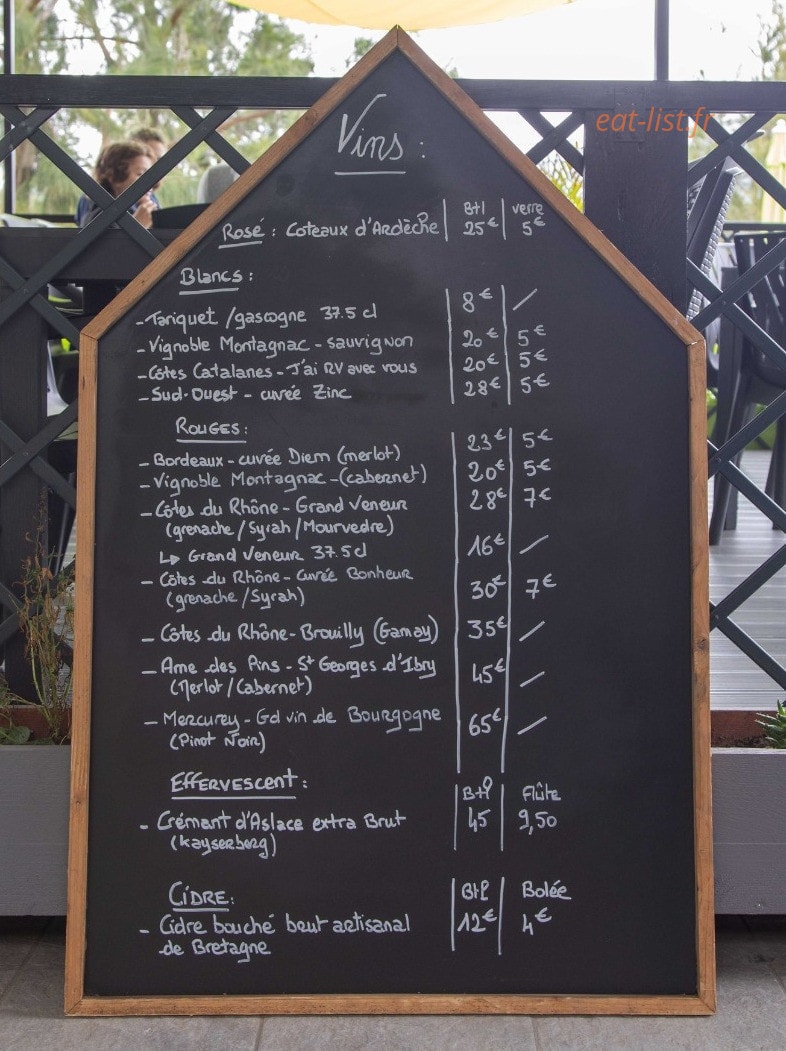 eat-list.fr
Vins :
Btl verre
Rosé : Coteaux d'Ardèche 25€ 5€
Blancs :
- Tariquet / gascogne 37.5 cl 8€ /
- Vignoble Montagnac - sauvignon 20€ 5€
- Côtes Catalanes - J'ai RV avec vous 20€ 5€
- Sud-Ouest - cuvée Zinc 28€ 5€
Rouges :
- Bordeaux - cuvée Diem (merlot) 23€ 5€
- Vignoble Montagnac - (cabernet) 20€ 5€
- Côtes du Rhône - Grand Veneur 28€ 7€
(grenache / Syrah / Mourvedre)
↳ Grand Veneur 37.5 cl 16€ /
- Côtes du Rhône - Cuvée Bonheur 30€ 7€
(grenache / Syrah)
- Côtes du Rhône - Brouilly (Gamay) 35€ /
- Ame des Pins - St Georges d'Ibry 45€ /
(Merlot / Cabernet)
- Mercurey - Gd vin de Bourgogne 65€ /
(Pinot Noir)
Effervescent : Btl Flûte
- Crémant d'Aslace extra Brut 45 9,50
(Kayserberg)
Cidre : Btl Bolée
- Cidre bouché brut artisanal 12€ 4€
de Bretagne